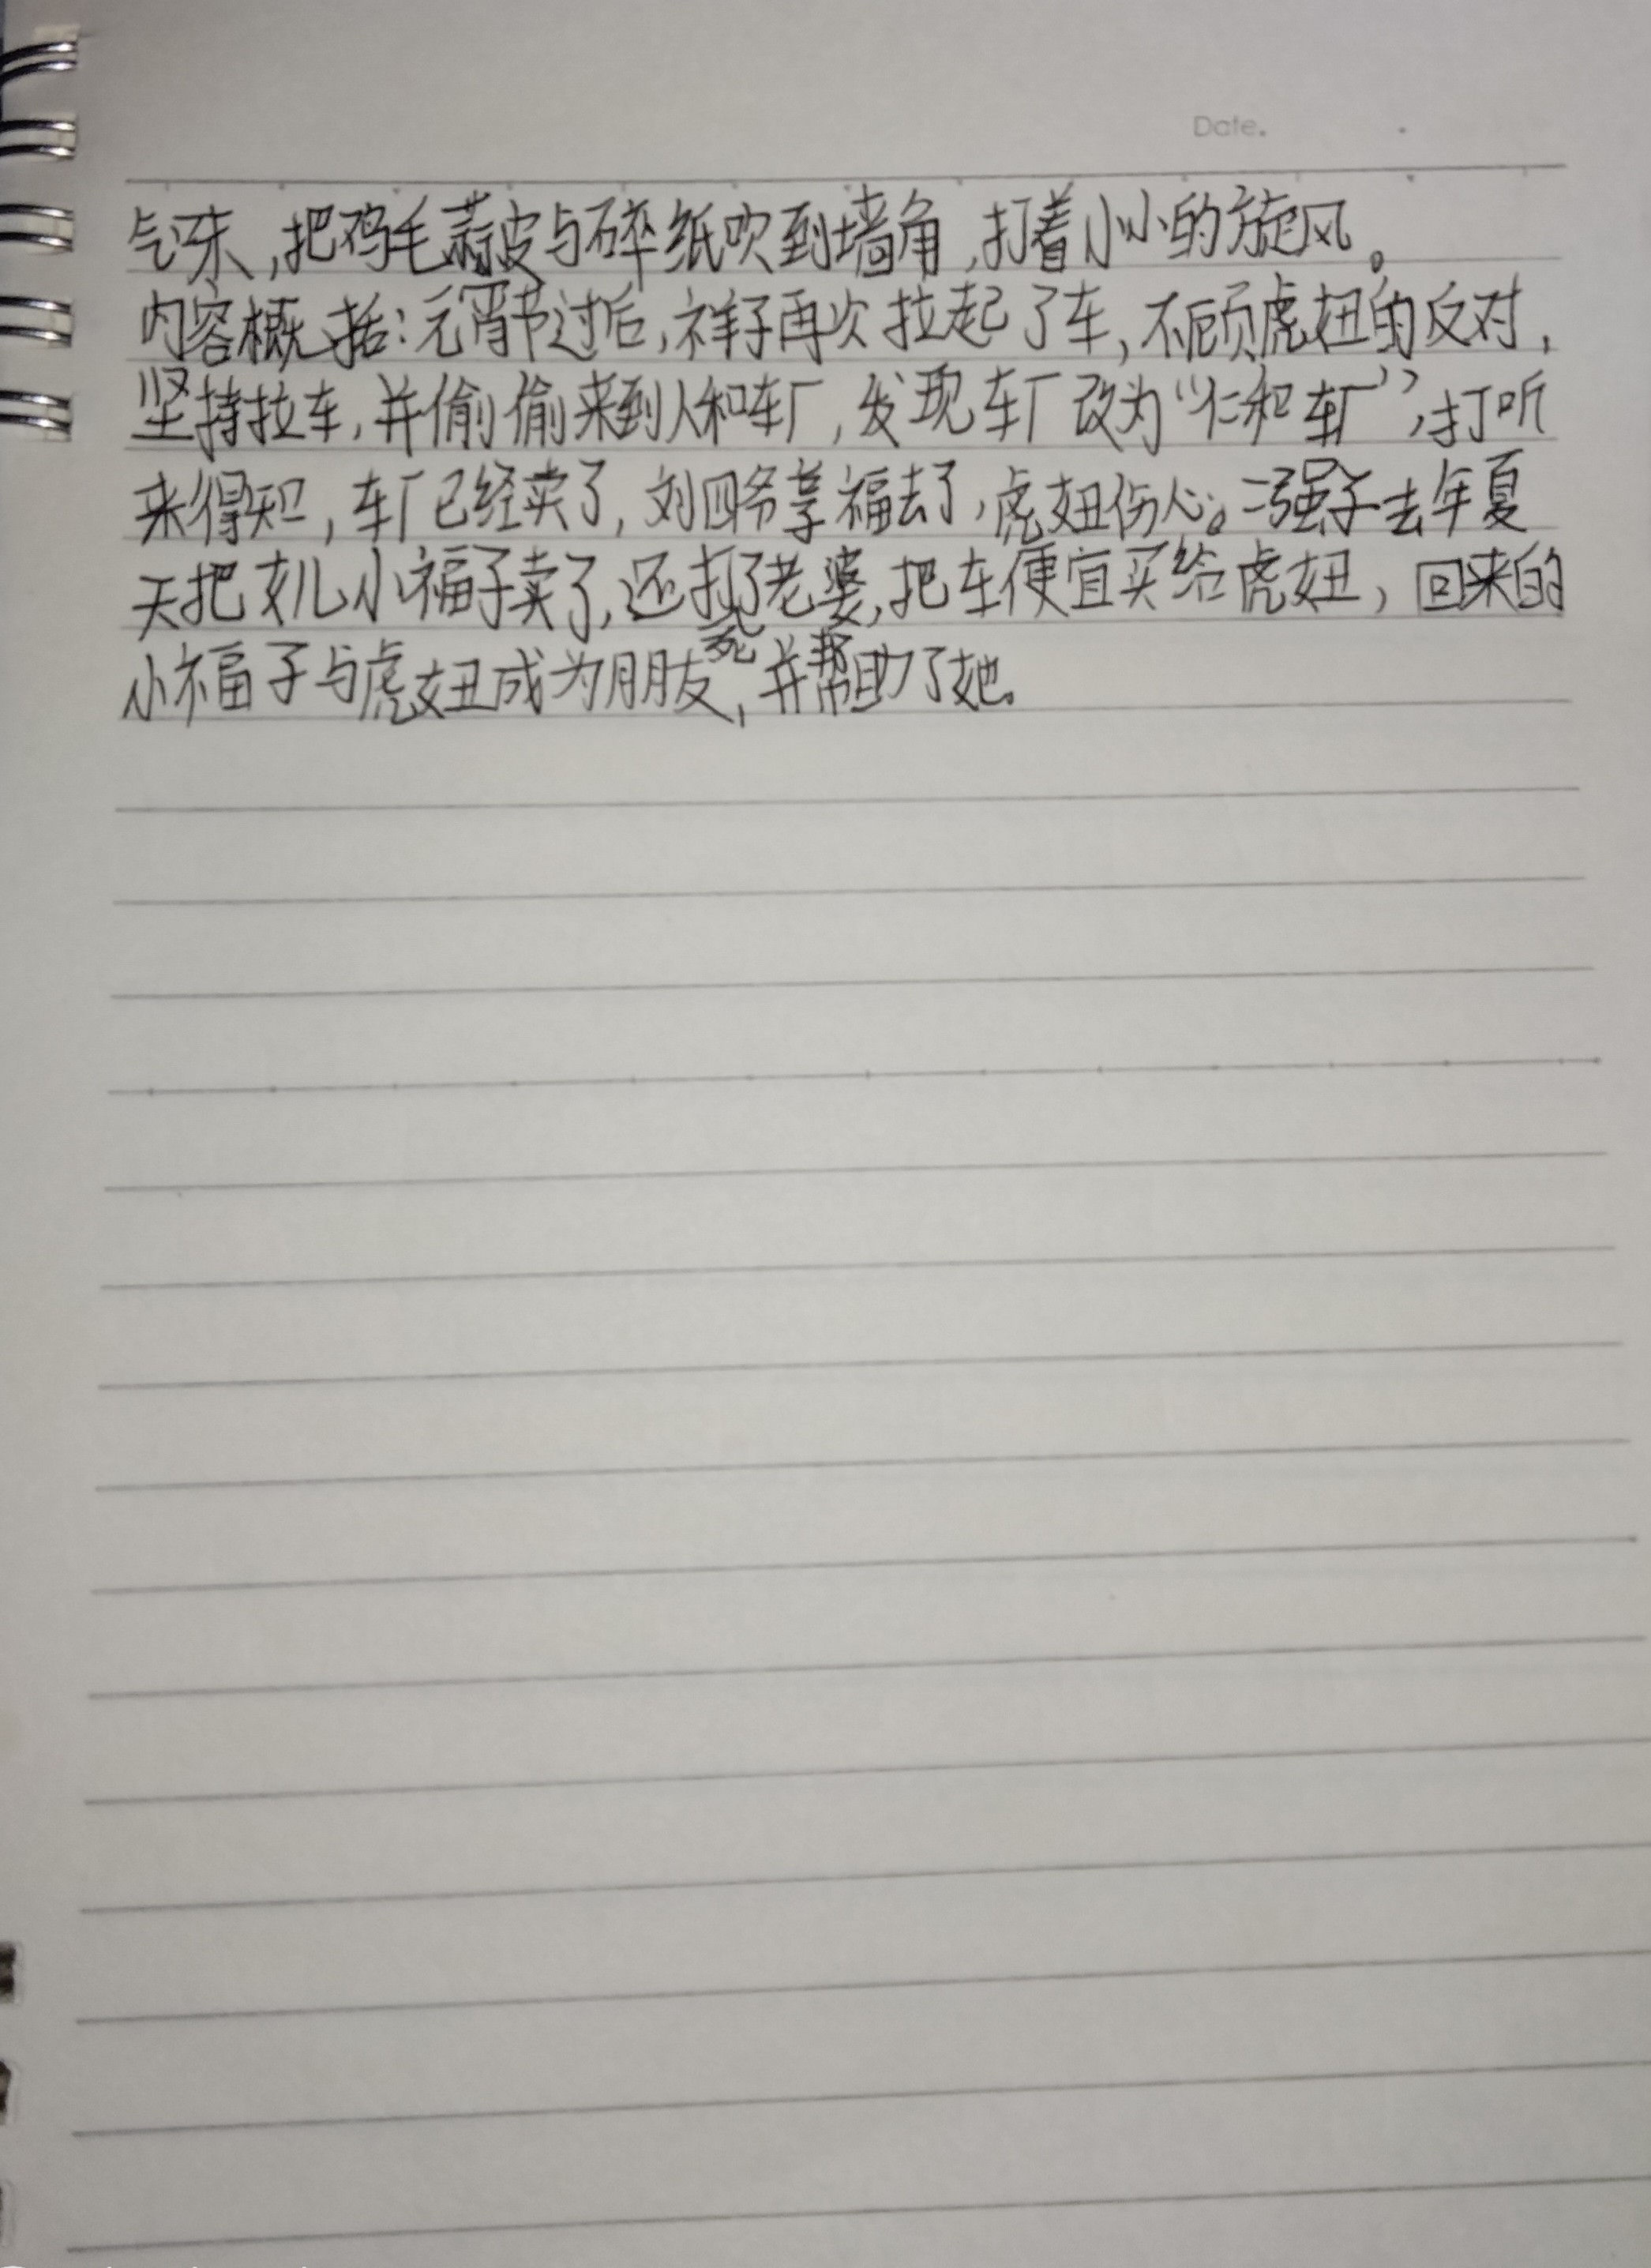 Date.
气味,把鸡毛蒜皮与碎纸吹到墙角,打着小小的旋风。
内容概括:元宵节过后,祥子再次拉起了车,不顾虎妞的反对,
坚持拉车,并偷偷来到人和车厂,发现车厂改为“仁和车厂”,打听
来得知,车厂已经卖了,刘四爷享福去了,虎妞伤心。二强子去年夏
天把女儿小福子卖了,还打死了老婆,把车便宜买给虎妞,回来的
小福子与虎妞成为朋友,并帮助了她。